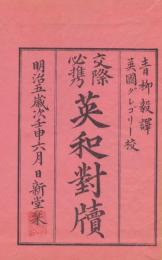 青柳毅譯
英國グレゴリー校
交際必携
英和對牘
明治五歳次壬申六月日新堂栞